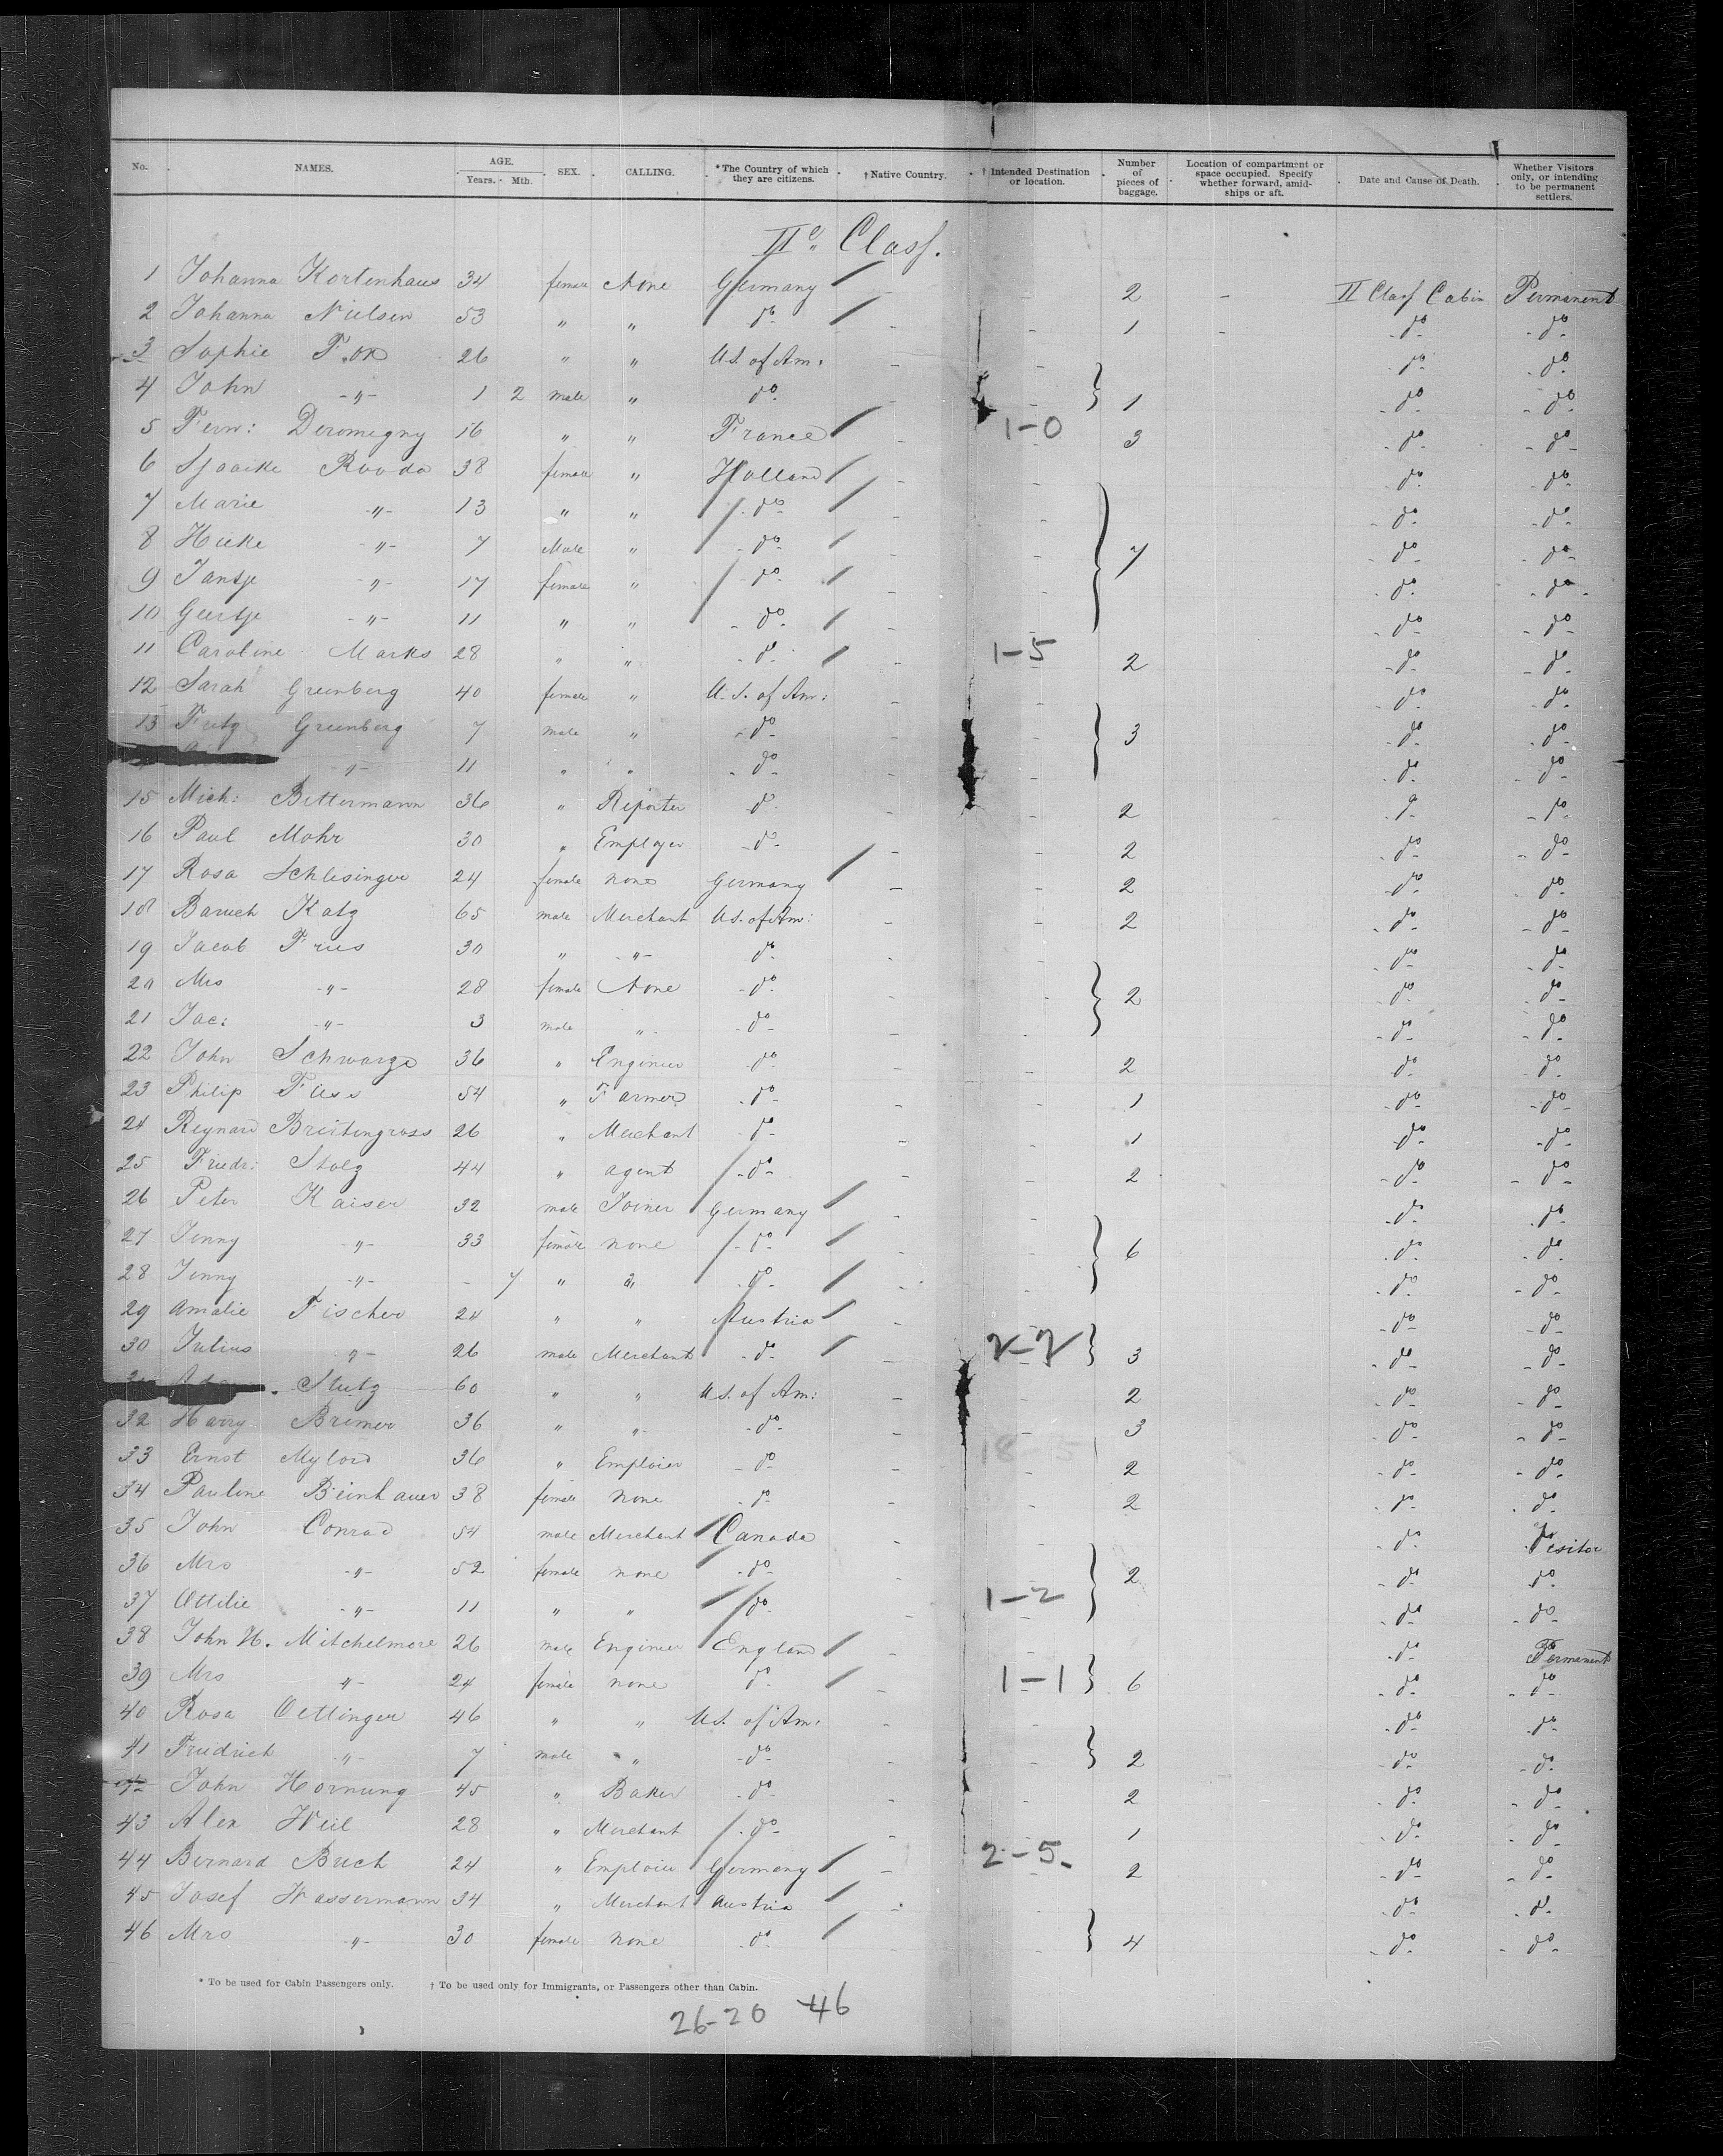 No. NAMES. AGE. Years. Mth. SEX. CALLING. *The Country of which they are citizens. †Native Country. †Intended Destination or location. Number of pieces of baggage. Location of compartment or space occupied. Specify whether forward, amidships or aft. Date and Cause of Death. Whether Visitors only, or intending to be permanent settlers.
IIe Class.
1 Johanna Kortenhaus 34 female None Germany / - 2 - II Class Cabin Permanent
2 Johanna Nielsen 53 " " do / - - 1 - do do
3 Sophie Fox 26 " " U.S. of Am: - - do do
4 John -"- 1 2 male " do - } 1 do do
5 Fern: Deromegny 16 " " France / - 1-0 3 do do
6 Sjaaike Rooda 38 female " Holland / - - do do
7 Marie -"- 13 " " do / - - do do
8 Hieke -"- 7 Male " do / - - } 7 do do
9 Jantje -"- 17 female " do / - do do
10 Geertje -"- 11 " " do / - do do
11 Caroline Marks 28 " " do / - 1-5 2 do do
12 Sarah Greenberg 40 female " U.S. of Am: do do
13 Fritz Greenberg 7 male " do - - } 3 do do
-"- 11 " " do - - do do
15 Mich: Bettermann 36 " Reporter do - - 2 do do
16 Paul Mohr 30 " Employer do - - 2 do do
17 Rosa Schlesinger 24 female none Germany / - - 2 do do
18 Baruch Katz 65 male Merchant U.S. of Am: - - 2 do do
19 Jacob Fries 30 " -"- do - do do
20 Mrs -"- 28 female None do - - } 2 do do
21 Jac: -"- 3 male " do - do do
22 John Schwarze 36 " Engineer do - - 2 do do
23 Philip Fuss 54 " Farmer do - - 1 do do
24 Reynard Breitengross 26 " Merchant do - - 1 do do
25 Friedr: Stolz 44 " agent do - - 2 do do
26 Peter Kaiser 32 male Joiner Germany / - - do do
27 Jenny -"- 33 female none do / - - } 6 do do
28 Jenny -"- - 7 " " do / - - do do
29 Amalie Fischer 24 " " Austria / - do do
30 Julius -"- 26 male Merchant do / - 2-2 } 3 do do
Stutz 60 " " U.S. of Am: - 2 do do
32 Harry Bremer 36 " " do - 3 do do
33 Ernst Mylord 36 " Emploier do - - 2 do do
34 Pauline Beinhauer 38 female none do - - 2 do do
35 John Conrad 54 male Merchant Canada - do Visitor
36 Mrs -"- 52 female none do - } 2 do do
37 Ottilie -"- 11 " " do - 1-2 do do
38 John H. Mitchelmore 26 male Engineer England / - - do Permanent
39 Mrs -"- 24 female none do / - 1-1 } 6 do do
40 Rosa Oettinger 46 " " U.S. of Am: - - do do
41 Friedrich -"- 7 male " do - - } 2 do do
42 John Hornung 45 " Baker do - - 2 do do
43 Alex Weil 28 " Merchant do - - 1 do do
44 Bernard Buch 24 " Emploier Germany / - 2-5- 2 do do
45 Josef Wassermann 34 " Merchant Austria / - do do
46 Mrs -"- 30 female none do / - - } 4 do do
* To be used for Cabin Passengers only. † To be used only for Immigrants, or Passengers other than Cabin.
26-20 46